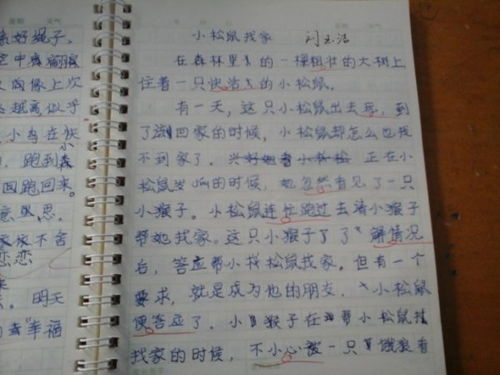 小松鼠找家
在森林里的一棵粗壮的大树上
住着一只快活的小松鼠。
有一天，这只小松鼠出去玩，到
了回家的时候，小松鼠却怎么也找
不到家了。正在小
松鼠的时候，她忽然看见了一只
小猴子。小松鼠连忙跑过去请小猴子
帮她找家。这只小猴子了了解情况
后，答应帮小松鼠找家。但有一个
要求，就是成为他的朋友，小松鼠
便答应了。小猴子在帮小松鼠
找家的时候，不小心被一只饿狼看
亲好绳子。
空中翩翩
像上次
越高似乎
小鸟在
跑到
回跑回来。
意思。
家不舍
恋恋
明天
幸福